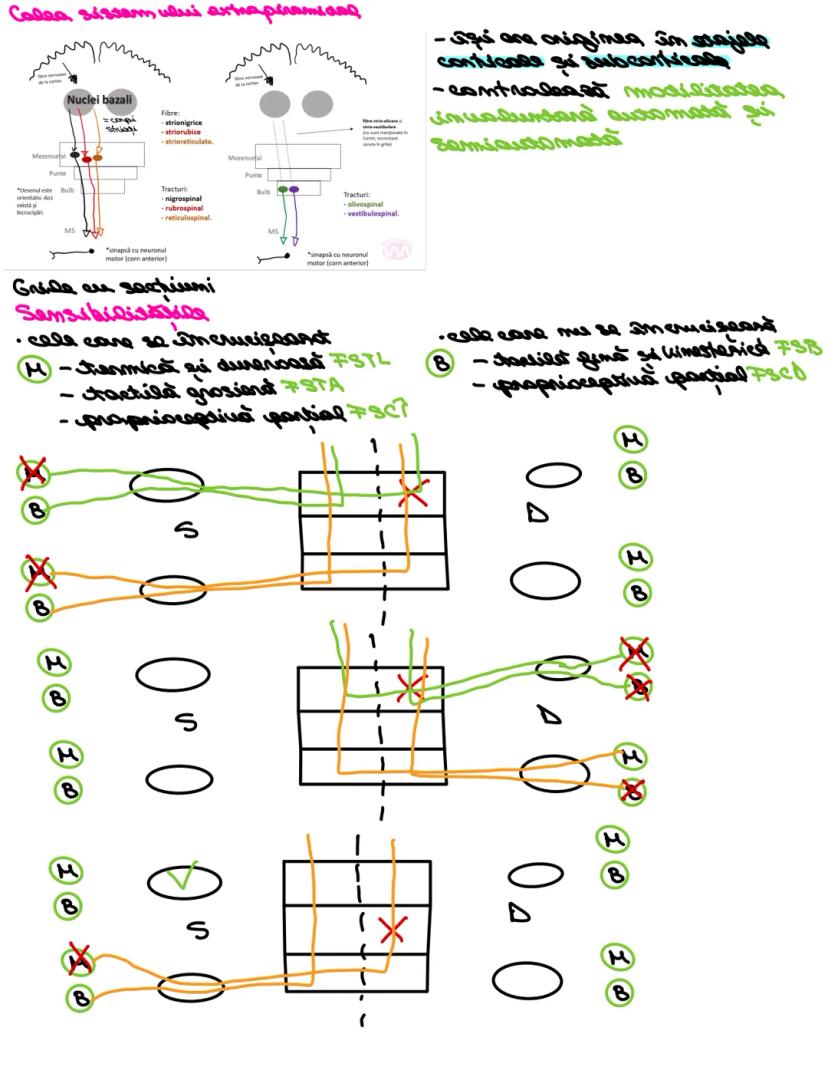 Calea sistemului extrapiramidal
fibre nervoase
de la cortex
Nuclei bazali
= corpi
striați
Mezencefal
Punte
Bulb
MS
*Desenul este
orientativ. Aici
există și
încrucișări.
Fibre:
- strionigrice
- striorubice
- strioreticulate.
Tracturi:
- nigrospinal
- rubrospinal
- reticulospinal.
*sinapsă cu neuronul
motor (corn anterior)
fibre nervoase
de la cortex
fibre strio-olivare și
strio-vestibulare
(nu sunt menționate în
Corint, inconstant
cerute în grile)
Mezencefal
Punte
Bulb
MS
Tracturi:
- olivospinal
- vestibulospinal.
*sinapsă cu neuronul
motor (corn anterior)
- își are originea în etajele
corticale și subcorticale
- controlează motilitatea
involuntară automată și
semiautomată
Grile cu secțiuni
Sensibilitățile
• cele care se încrucișează
M - termică și dureroasă FSTL
- tactilă grosieră FSTA
- proprioceptivă parțial FSCÎ
• cele care nu se încrucișează
B - tactilă fină și kinestezică FSB
- proprioceptivă parțial FSCD
M
B
S
M
B
M
B
D
M
B
M
B
S
M
B
M
B
D
M
B
M
B
S
M
B
M
B
D
M
B